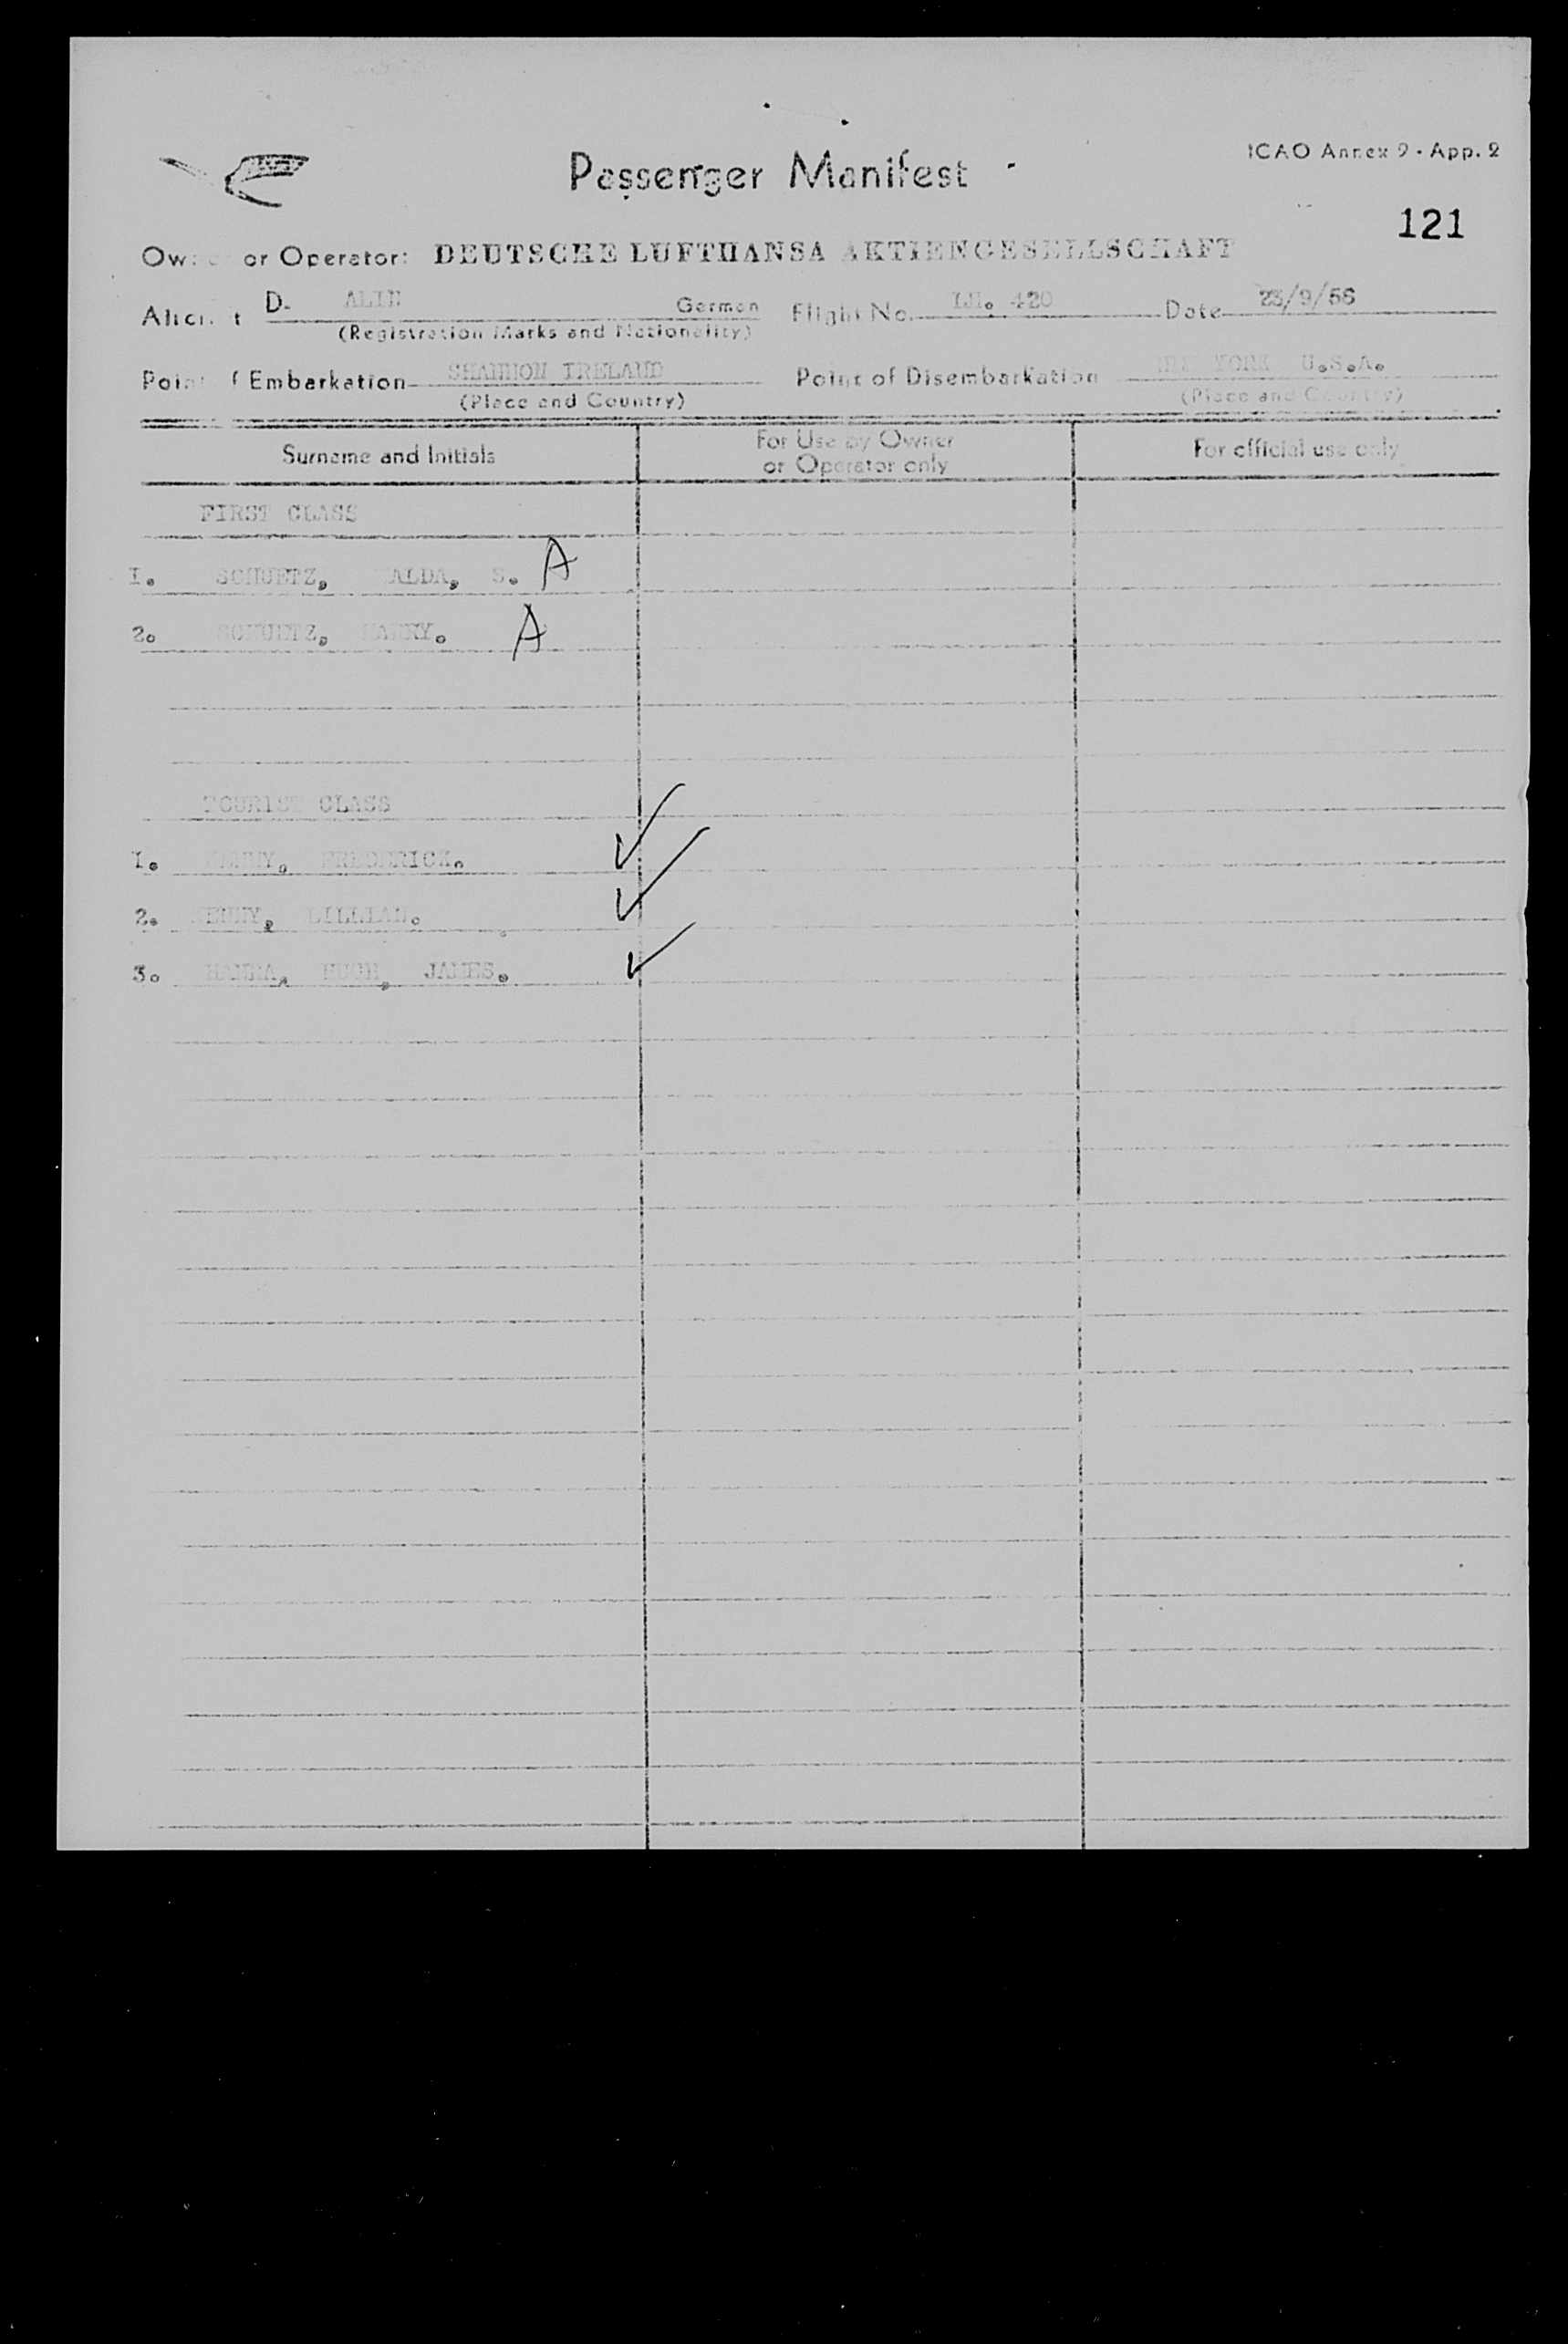 Passenger Manifest
ICAO Annex 9 - App. 2
121
Owner or Operator: DEUTSCHE LUFTHANSA AKTIENGESELLSCHAFT
Aircraft D- ALIN German Flight No. LH. 420 Date 23/9/56
(Registration Marks and Nationality)
Point of Embarkation SHANNON IRELAND Point of Disembarkation NEW YORK U.S.A.
(Place and Country) (Place and Country)
Surname and Initials For Use by Owner or Operator only For official use only
FIRST CLASS
1. SCHUETZ, ALDA, S. A
2. SCHUETZ, HARRY. A
TOURIST CLASS
1. FREDERICK. ✓
2. LILLIAN. ✓
3. HANNA, HUGH, JAMES. ✓